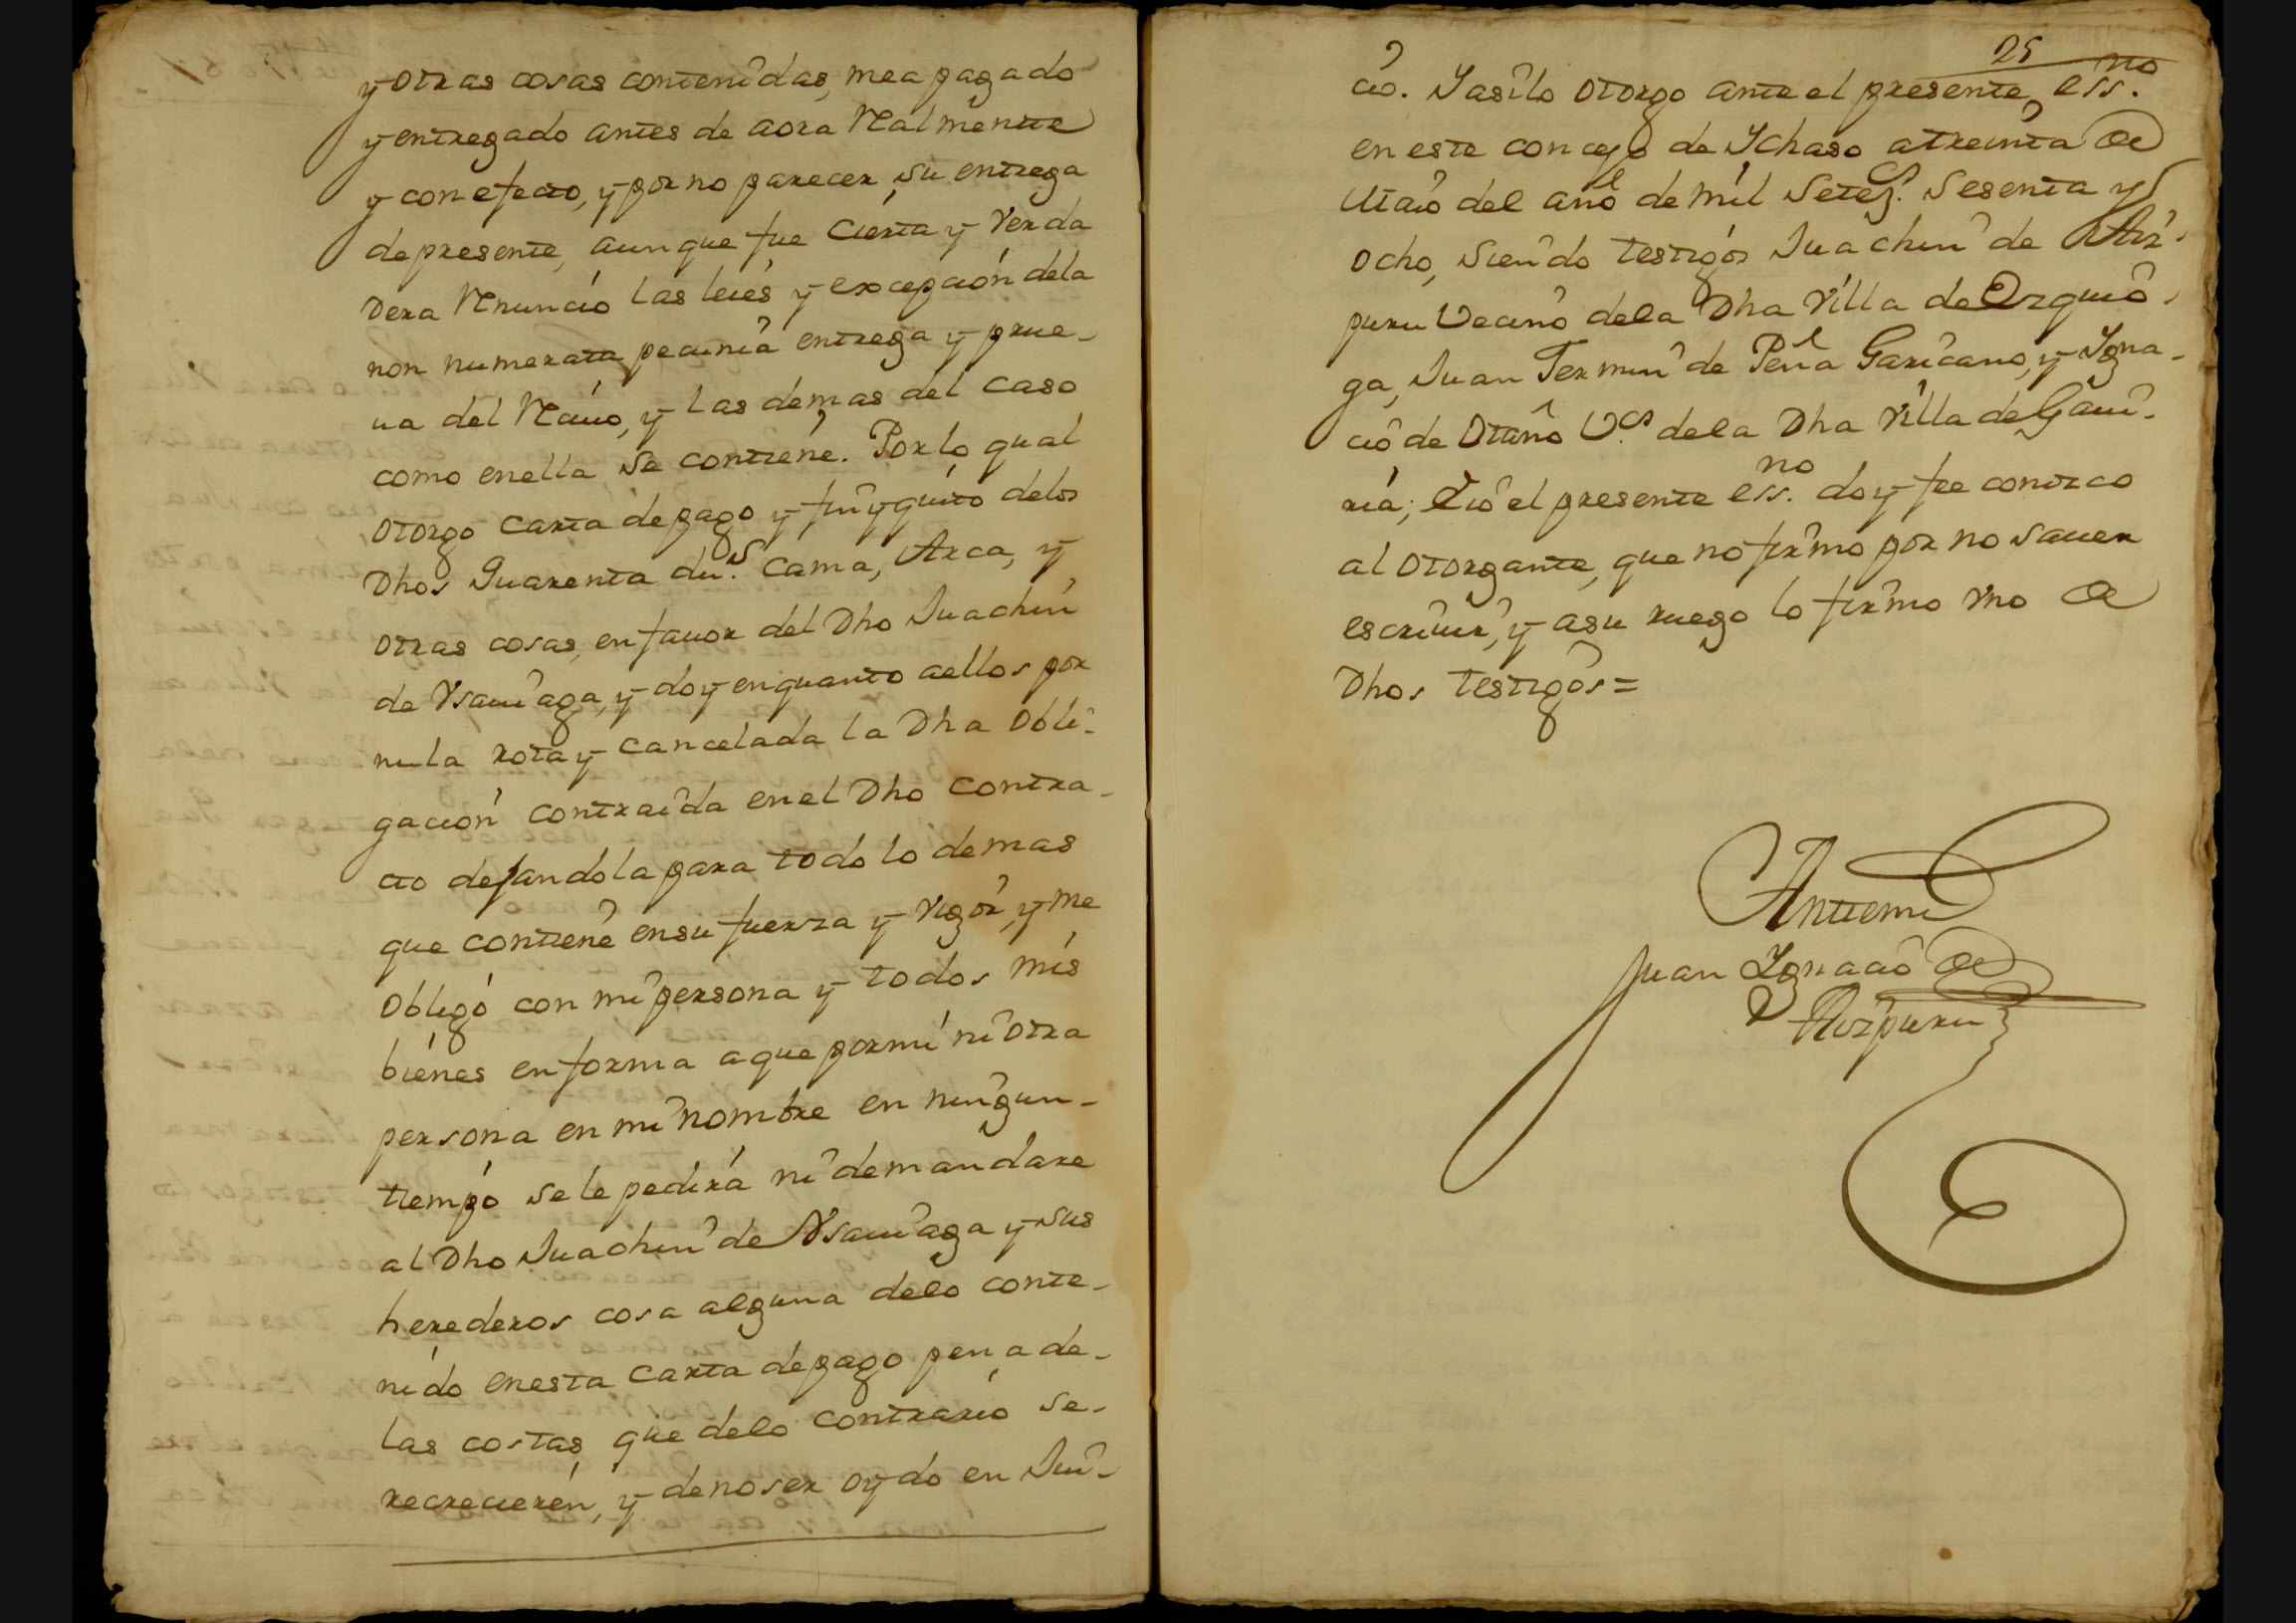 y otras cosas contenidas, mea pagado
y entregado antes de aora Realmente
y con efecto, y por no parecer su entrega
de presente, aunque fue Cierta y Verda
dera Renuncio las leies y excepcion dela
non numerata pecunia entrega y prue-
ua del Reciuo, y las demas del caso
como enella se contiene. Por lo qual
otorgo Carta de pago y finyquito delos
Dhos Quarenta du.s Cama, Arca, y
otras cosas, en fauor del Dho Juachin
de Ysauiaga, y doy en quanto aellos por
nula rota y Cancelada la Dha obli-
gacion contraida enel Dho Contra-
cto dejandola para todo lo demas
que contiene ensu fuerza y vigor, y me
obligo con mi persona y todos mis
bienes en forma a que por mi ni otra
persona en mi nombre en ningun-
tiempo se le pedirá ni demandare
al Dho Juachin de Ysauiaga y sus
herederos cosa alguna delo conte-
nido enesta Carta de pago pena de-
las costas, que delo contrario se-
recrecieren, y de no ser oydo en Jui-
25
cio. Yasilo otorgo ante el presente, ess.no
en este concejo de Ychaso atreinta de
Maio del año de mil Setez.s Sesenta y
ocho, siendo testigos Juachin de Aiz-
puru Vecino dela Dha Villa de Ezquio-
ga, Juan Fermin de Peña Garicano, y Ygna-
cio de Otaño V.os dela Dha Villa de Gaui-
ria; E io el presente ess.no doy fee conozco
al otorgante, que no firmo por no sauer
escriuir, y asu ruego lo firmo vno de
Dhos testigos=
Antemi
Juan Ygnacio de
Aizpuru